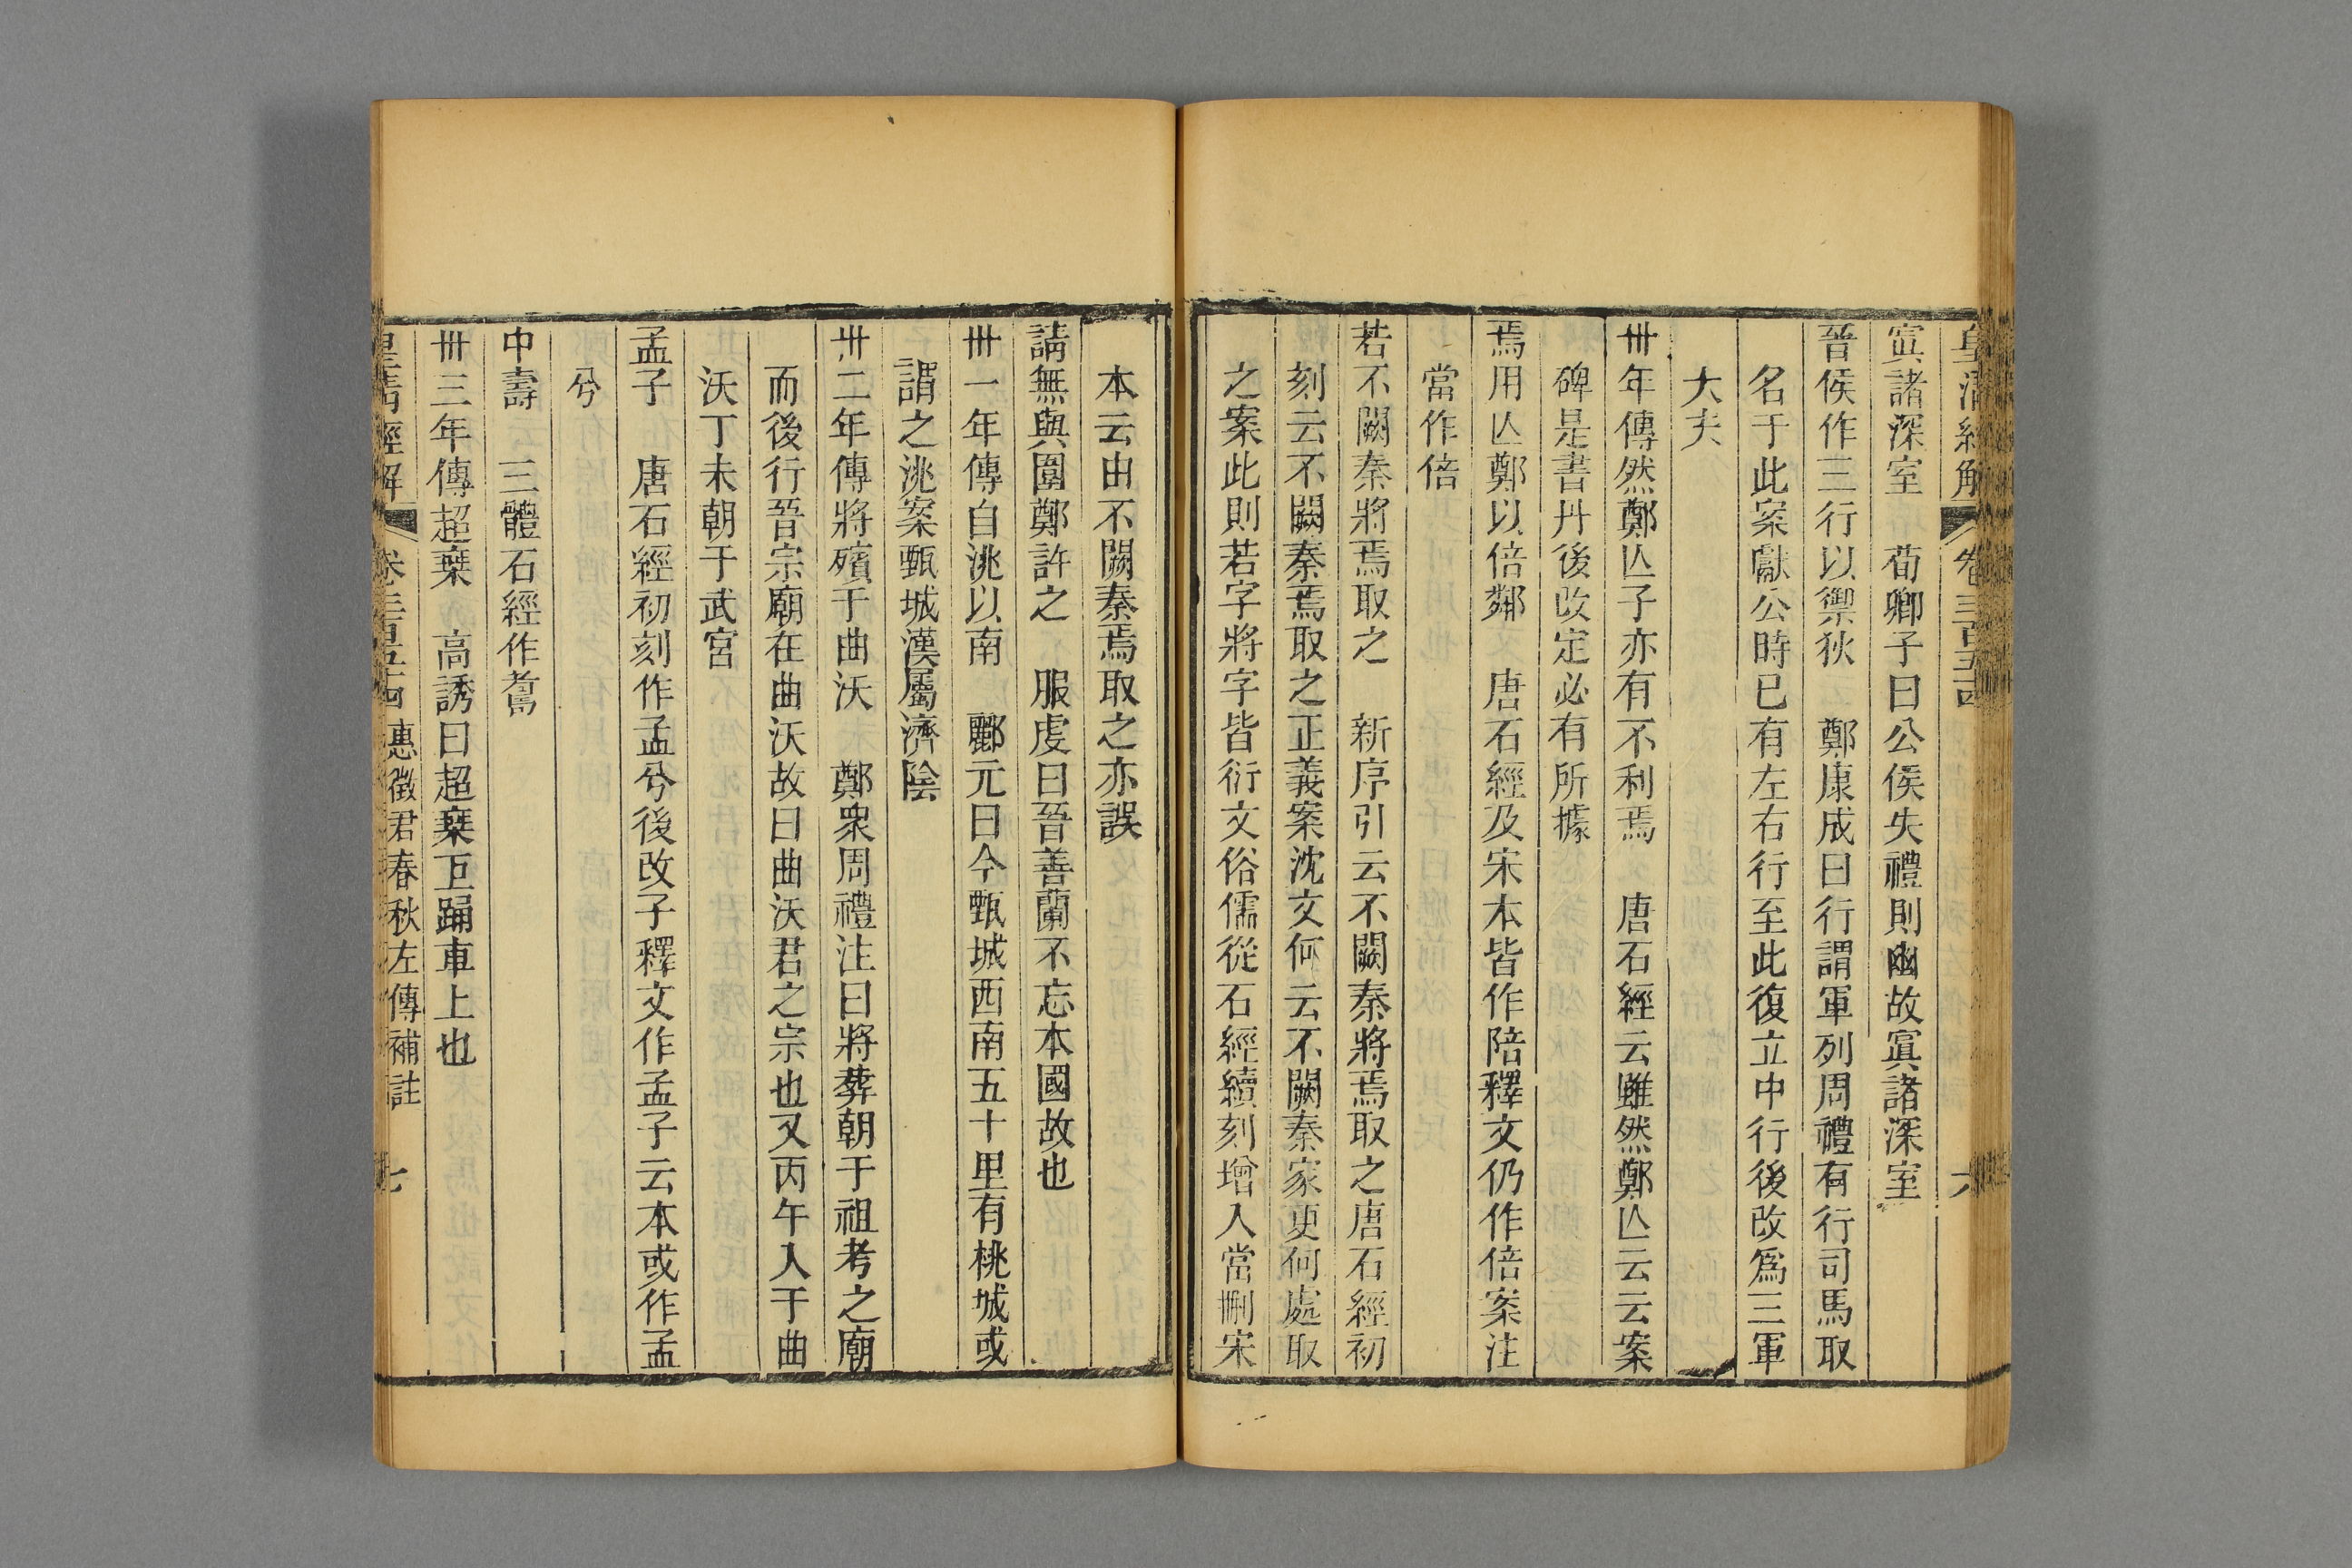 皇清經解 卷三百五十四 六
寘諸深室 荀卿子曰公侯失禮則幽故寘諸深室
晉侯作三行以禦狄 鄭康成曰行謂軍列周禮有行司馬取
名于此案獻公時已有左右行至此復立中行後改爲三軍
大夫
卅年傳然鄭亾子亦有不利焉 唐石經云雖然鄭亾云云案
碑是書丹後改定必有所據
焉用亾鄭以倍鄰 唐石經及宋本皆作陪釋文仍作倍案注
當作倍
若不闕秦將焉取之 新序引云不闕秦將焉取之唐石經初
刻云不闕秦焉取之正義案沈文何云不闕秦家更何處取
之案此則若字將字皆衍文俗儒從石經續刻增入當刪宋
本云由不闕秦焉取之亦誤
請無與圍鄭許之 服虔曰晉善蘭不忘本國故也
卅一年傳自洮以南 酈元曰今甄城西南五十里有桃城或
謂之洮案甄城漢屬濟陰
卅二年傳將殯于曲沃 鄭衆周禮注曰將葬朝于祖考之廟
而後行晉宗廟在曲沃故曰曲沃君之宗也又丙午入于曲
沃丁未朝于武宮
孟子 唐石經初刻作孟兮後改子釋文作孟子云本或作孟
兮
中壽 三體石經作𦒻
卅三年傳超椉 高誘曰超椉巨踊車上也
皇清經解 卷三百五十四 惠徵君春秋左傳補註 七